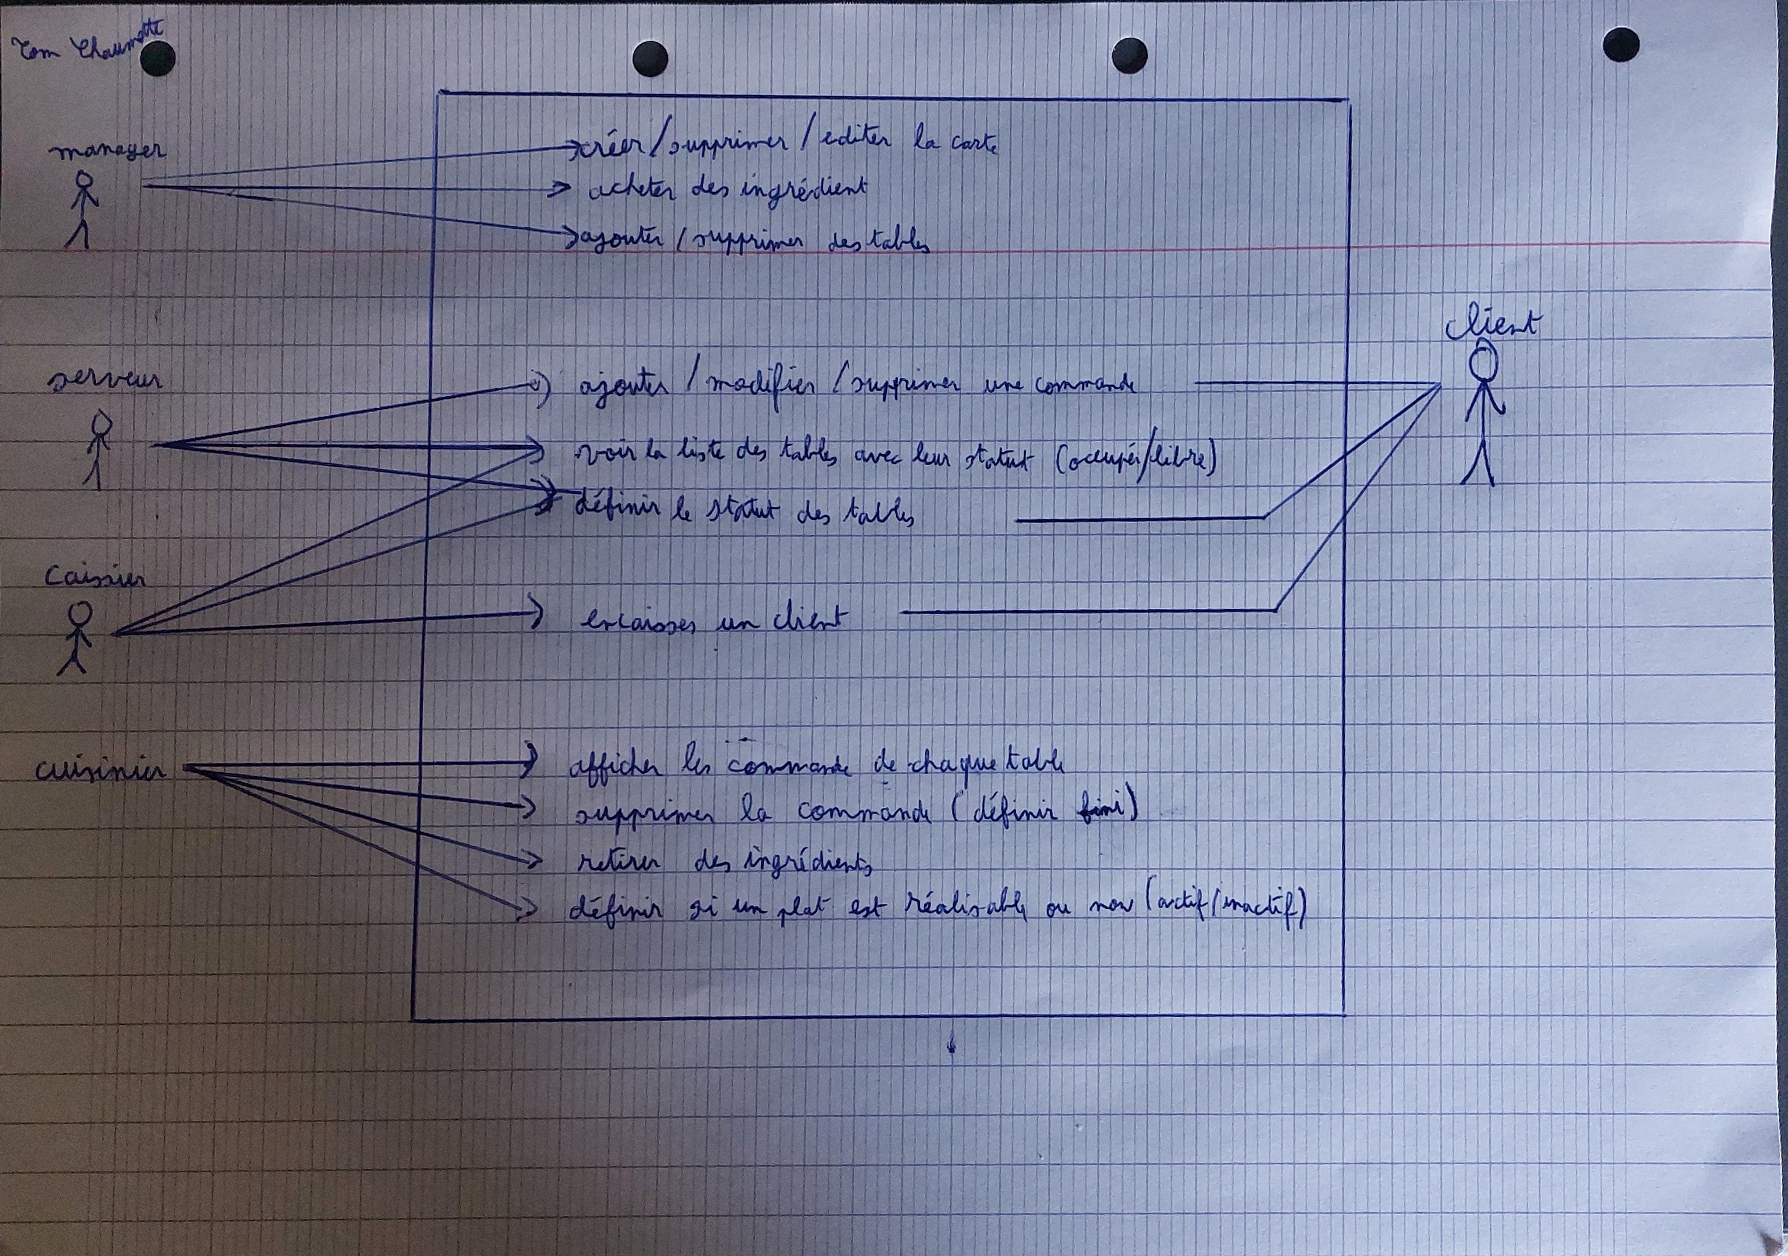 Tom Chaumette
manager
créer/supprimer/editer la carte
acheter des ingrédient
ajouter/supprimer des tables
client
serveur
ajouter/modifier/supprimer une commande
voir la liste des tables avec leur statut (occupés/libre)
définir le statut des tables
caissier
encaisser un client
cuisinier
afficher les commande de chaque table
supprimer la commande (définir fini)
retirer des ingrédients
définir si un plat est réalisable ou non (actif/inactif)